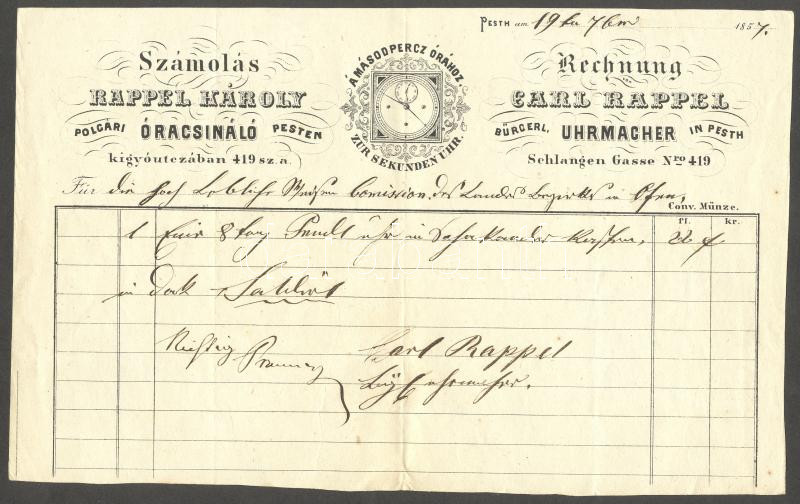 PESTH am 19ten 7ber 1857.
Számolás
RAPPEL KÁROLY
POLGÁRI ÓRACSINÁLÓ PESTEN
kigyóutczában 419 sz.a.
A MÁSODPERCZ ÓRÁHOZ.
ZUR SEKUNDEN UHR.
Rechnung
CARL RAPPEL
BÜRGERL. UHRMACHER IN PESTH
Schlangen Gasse Nro 419
Für die hoch Lobliche Comission des Landes Bezirks in Ofen,
Conv. Münze.
fl. kr.
1 Eine 8 tag Pendl uhr in
in dach
Richtig Carl Rappel